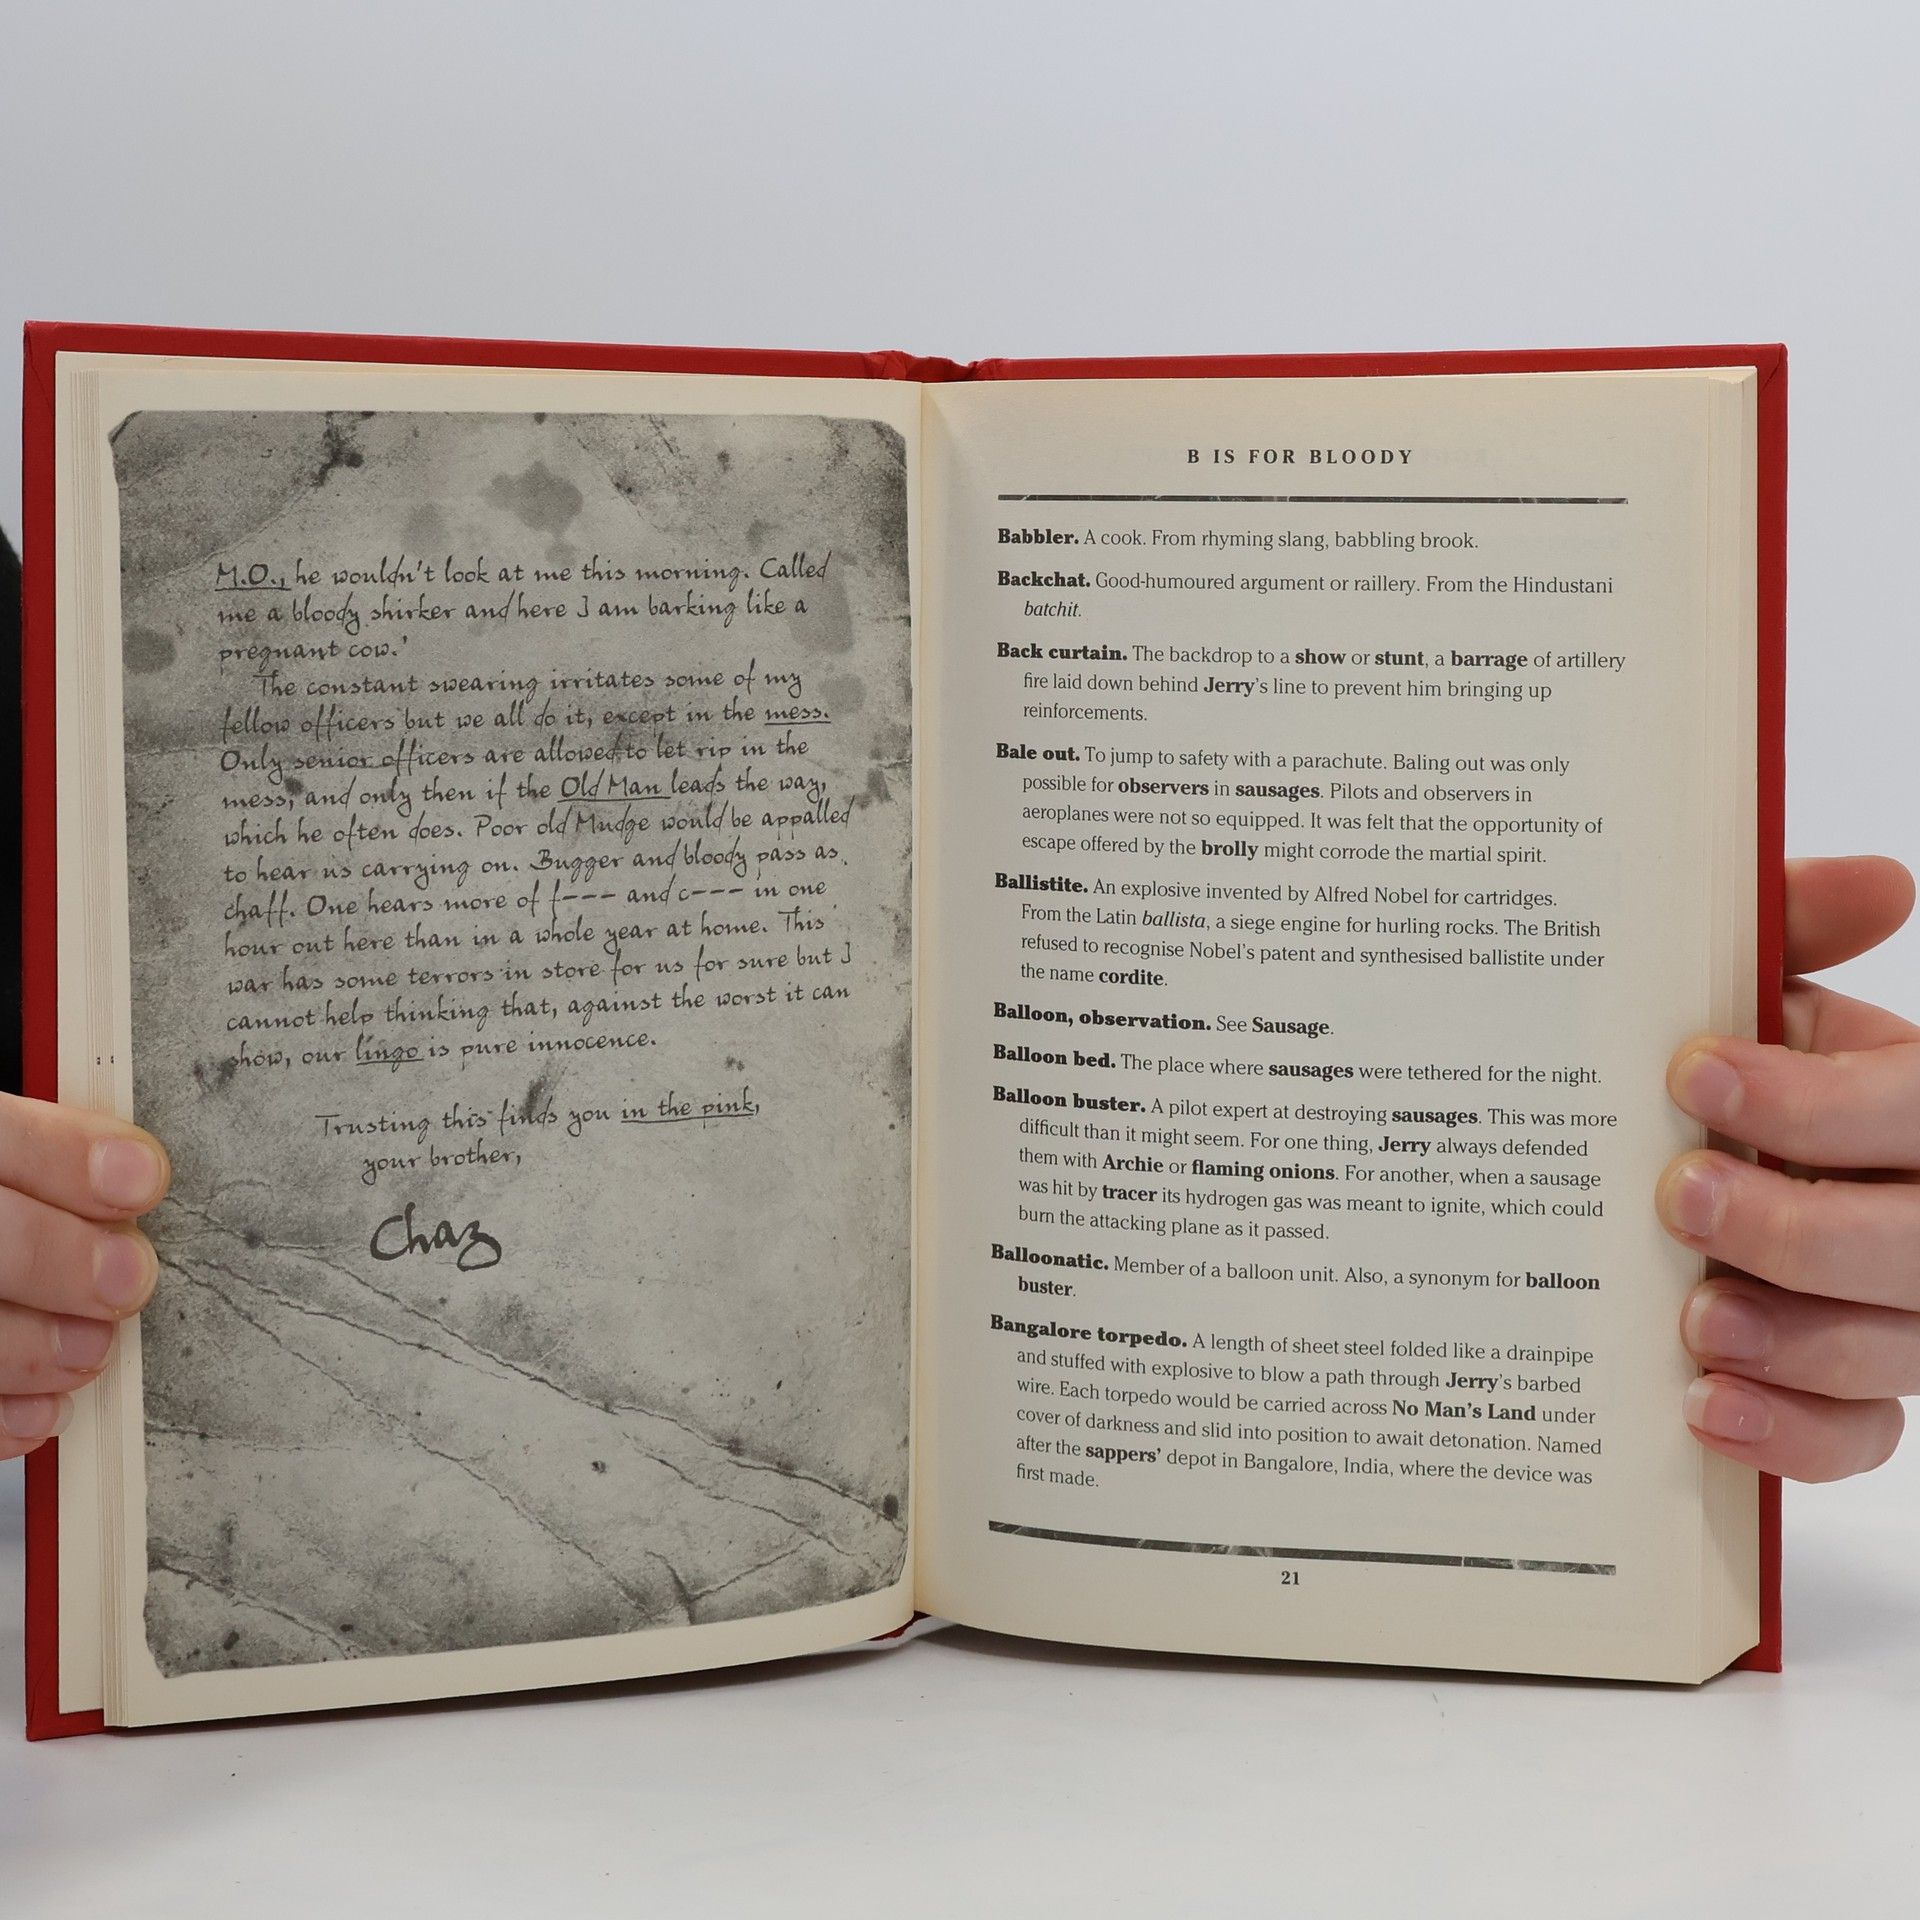 M.O., he wouldn't look at me this morning. Called
me a bloody shirker and here I am barking like a
pregnant cow.'
The constant swearing irritates some of my
fellow officers but we all do it, except in the mess.
Only senior officers are allowed to let rip in the
mess, and only then if the Old Man leads the way,
which he often does. Poor old Mudge would be appalled
to hear us carrying on. Bugger and bloody pass as
chaff. One hears more of f--- and c--- in one
hour out here than in a whole year at home. This
war has some terrors in store for us for sure but I
cannot help thinking that, against the worst it can
show, our lingo is pure innocence.
Trusting this finds you in the pink,
your brother,
Chaz
B IS FOR BLOODY
Babbler. A cook. From rhyming slang, babbling brook.
Backchat. Good-humoured argument or raillery. From the Hindustani
batchit.
Back curtain. The backdrop to a show or stunt, a barrage of artillery
fire laid down behind Jerry's line to prevent him bringing up
reinforcements.
Bale out. To jump to safety with a parachute. Baling out was only
possible for observers in sausages. Pilots and observers in
aeroplanes were not so equipped. It was felt that the opportunity of
escape offered by the brolly might corrode the martial spirit.
Ballistite. An explosive invented by Alfred Nobel for cartridges.
From the Latin ballista, a siege engine for hurling rocks. The British
refused to recognise Nobel's patent and synthesised ballistite under
the name cordite.
Balloon, observation. See Sausage.
Balloon bed. The place where sausages were tethered for the night.
Balloon buster. A pilot expert at destroying sausages. This was more
difficult than it might seem. For one thing, Jerry always defended
them with Archie or flaming onions. For another, when a sausage
was hit by tracer its hydrogen gas was meant to ignite, which could
burn the attacking plane as it passed.
Balloonatic. Member of a balloon unit. Also, a synonym for balloon
buster.
Bangalore torpedo. A length of sheet steel folded like a drainpipe
and stuffed with explosive to blow a path through Jerry's barbed
wire. Each torpedo would be carried across No Man's Land under
cover of darkness and slid into position to await detonation. Named
after the sappers' depot in Bangalore, India, where the device was
first made.
21